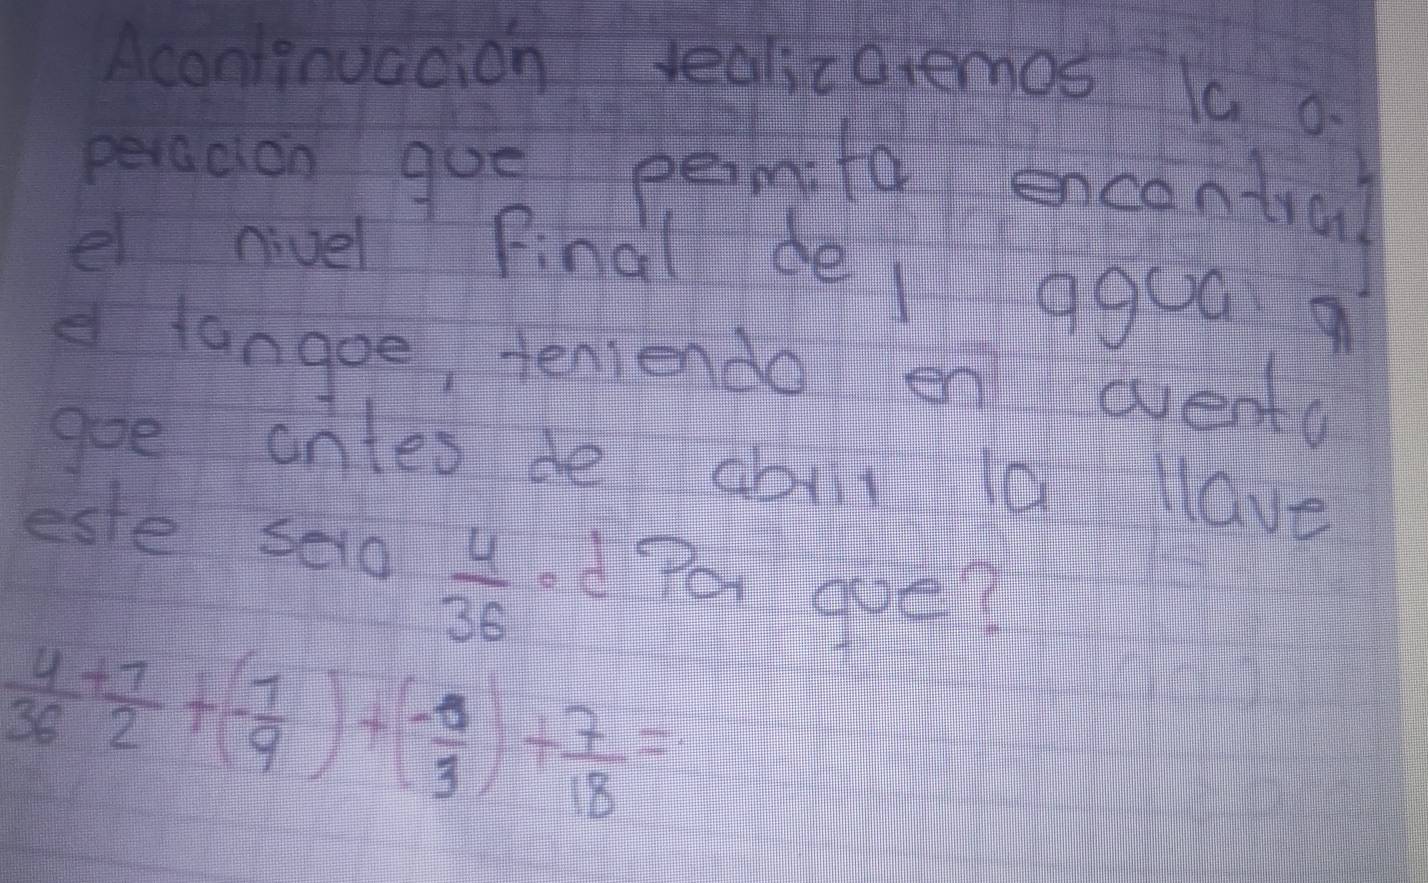 Acontinuación realizaremos la o-
peración que permita encontrar
el nivel final del agua
el tanque, teniendo en cuenta
que antes de abrir la llave
este sera 4/36. ¿Por que?
4/36 + 7/2 + (-7/9) + (-8/3) + 7/18 =